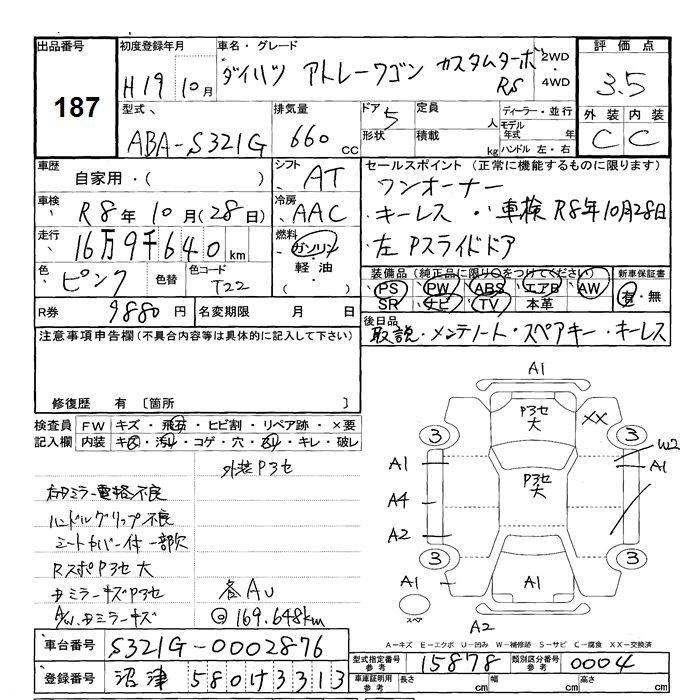 出品番号 187
初度登録年月 H19 10月
車名・グレード ダイハツ アトレーワゴン カスタムターボ RS
2WD
4WD
評価点 3.5
外装 内装
C C
型式 ABA-S321G
排気量 660 cc
ドア 5
形状
定員 人
積載 kg
ディーラー・並行
モデル年式 年
ハンドル 左・右
車歴 自家用・( )
シフト AT
セールスポイント(正常に機能するものに限ります)
ワンオーナー
・キーレス ・車検 R8年10月28日
左 Pスライドドア
車検 R8年 10月(28日)
冷房 AAC
走行 16万9千640km
燃料 ガソリン・軽油・( )
色 ピンク
色替
色コード T22
装備品(純正品に限り○をつけてください)
PS PW ABS エアB AW
SR ナビ TV 本革
新車保証書 有・無
R券 9880円
名変期限 月 日
後日品
取説・メンテノート・スペアキー・キーレス
注意事項申告欄(不具合内容等は具体的に記入して下さい)
修復歴 有 〔箇所 〕
検査員記入欄
FW キズ・飛石・ヒビ割・リペア跡・×要
内装 キズ・汚れ・コゲ・穴・・キレ・破レ
外装P3セ
右ドミラー電格不良
ハンドルグリップ不良
シートカバー付 一部欠
RスポP3セ 大
ドミラーキズP3セ
各AU
ドミラーキズ
@ 169.648km
A1
P3セ 大
XX
3 3
A1
W2
A1
P3セ 大
A4
A2
3 3
A1
A1
スペア
A2
A-キズ E-エクボ U-凹み W-補修跡 S-サビ C-腐食 XX-交換済
車台番号 S321G-0002876
登録番号 沼津 580け3313
型式指定番号 参考 15878
類別区分番号 参考 0004
車庫証明用 参考 長さ cm 幅 cm 高さ cm